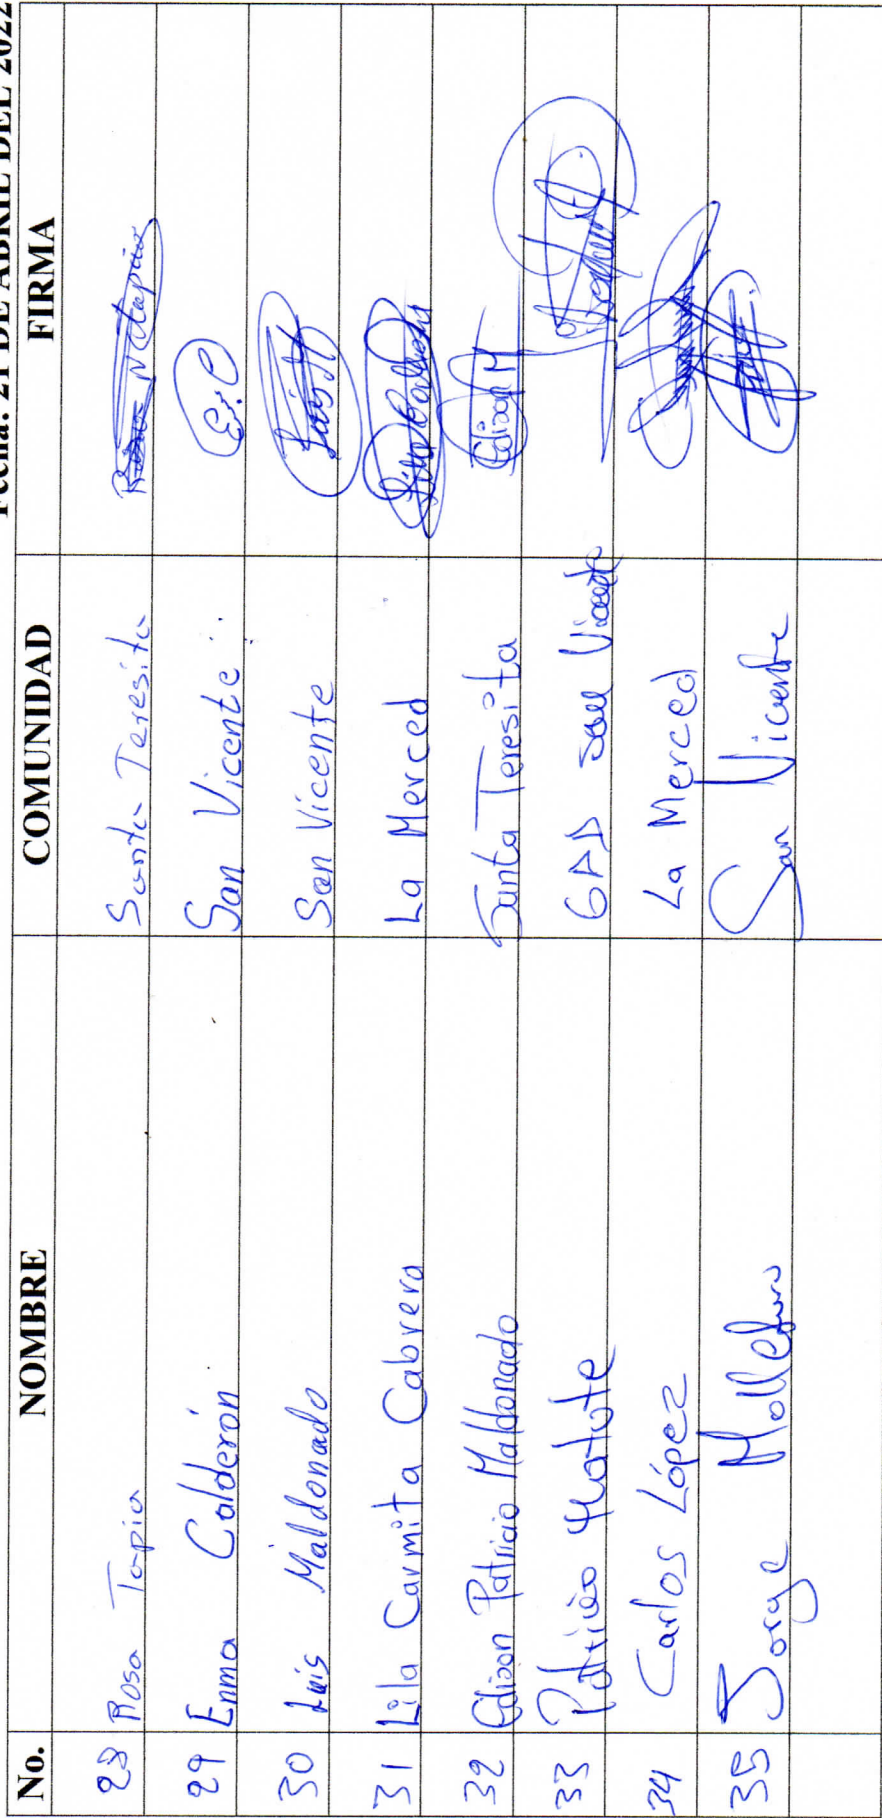 Fecha: 21 DE ABRIL DEL 2022
No. NOMBRE COMUNIDAD FIRMA
28 Rosa Tapia Santa Teresita Rosa N Tapia
29 Enma Calderón San Vicente E.C
30 Luis Maldonado San Vicente Luis M
31 Lila Carmita Cabrera La Merced
32 Edison Patricio Maldonado Santa Teresita Edison M
33 Patricio Matute GAD San Vicente
34 Carlos López La Merced
35 Jorge Molleturo San Vicente